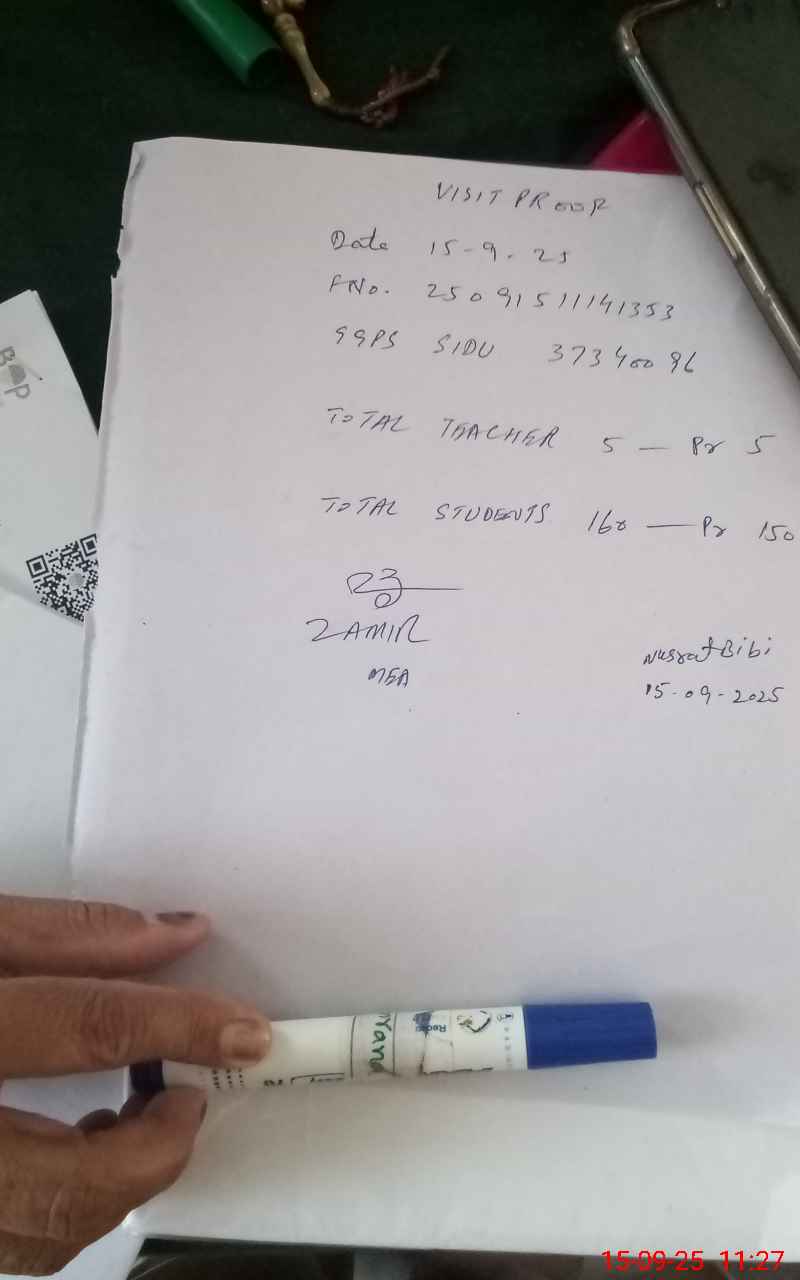 VISIT PROOF
Date 15-9-25
FNo. 25091511141353
GGPS SIDU 37340096
TOTAL TEACHER 5 — Pr 5
TOTAL STUDENTS 160 — Pr 150
ZAMIR
MEA
Nusrat Bibi
15-09-2025
BOP
15-09-25 11:27